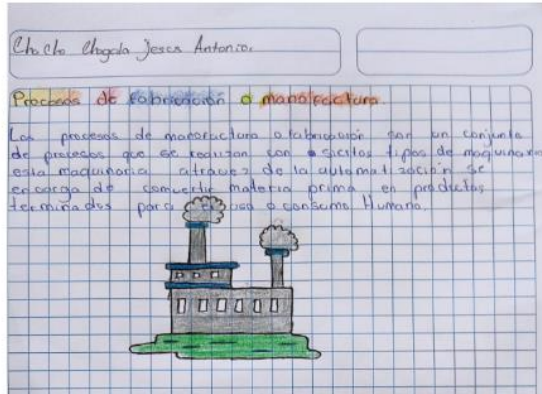 Chacho Chagala Jesus Antonio.
Procesos de fabricación o manofactura.
Los procesos de manofactura o fabricación son un conjunto
de procesos que se realizan con ciertos tipos de maquinaria
esta maquinaria atravez de la automatización se
encarga de convertir materia prima en productos
terminados para uso o consumo Humano.